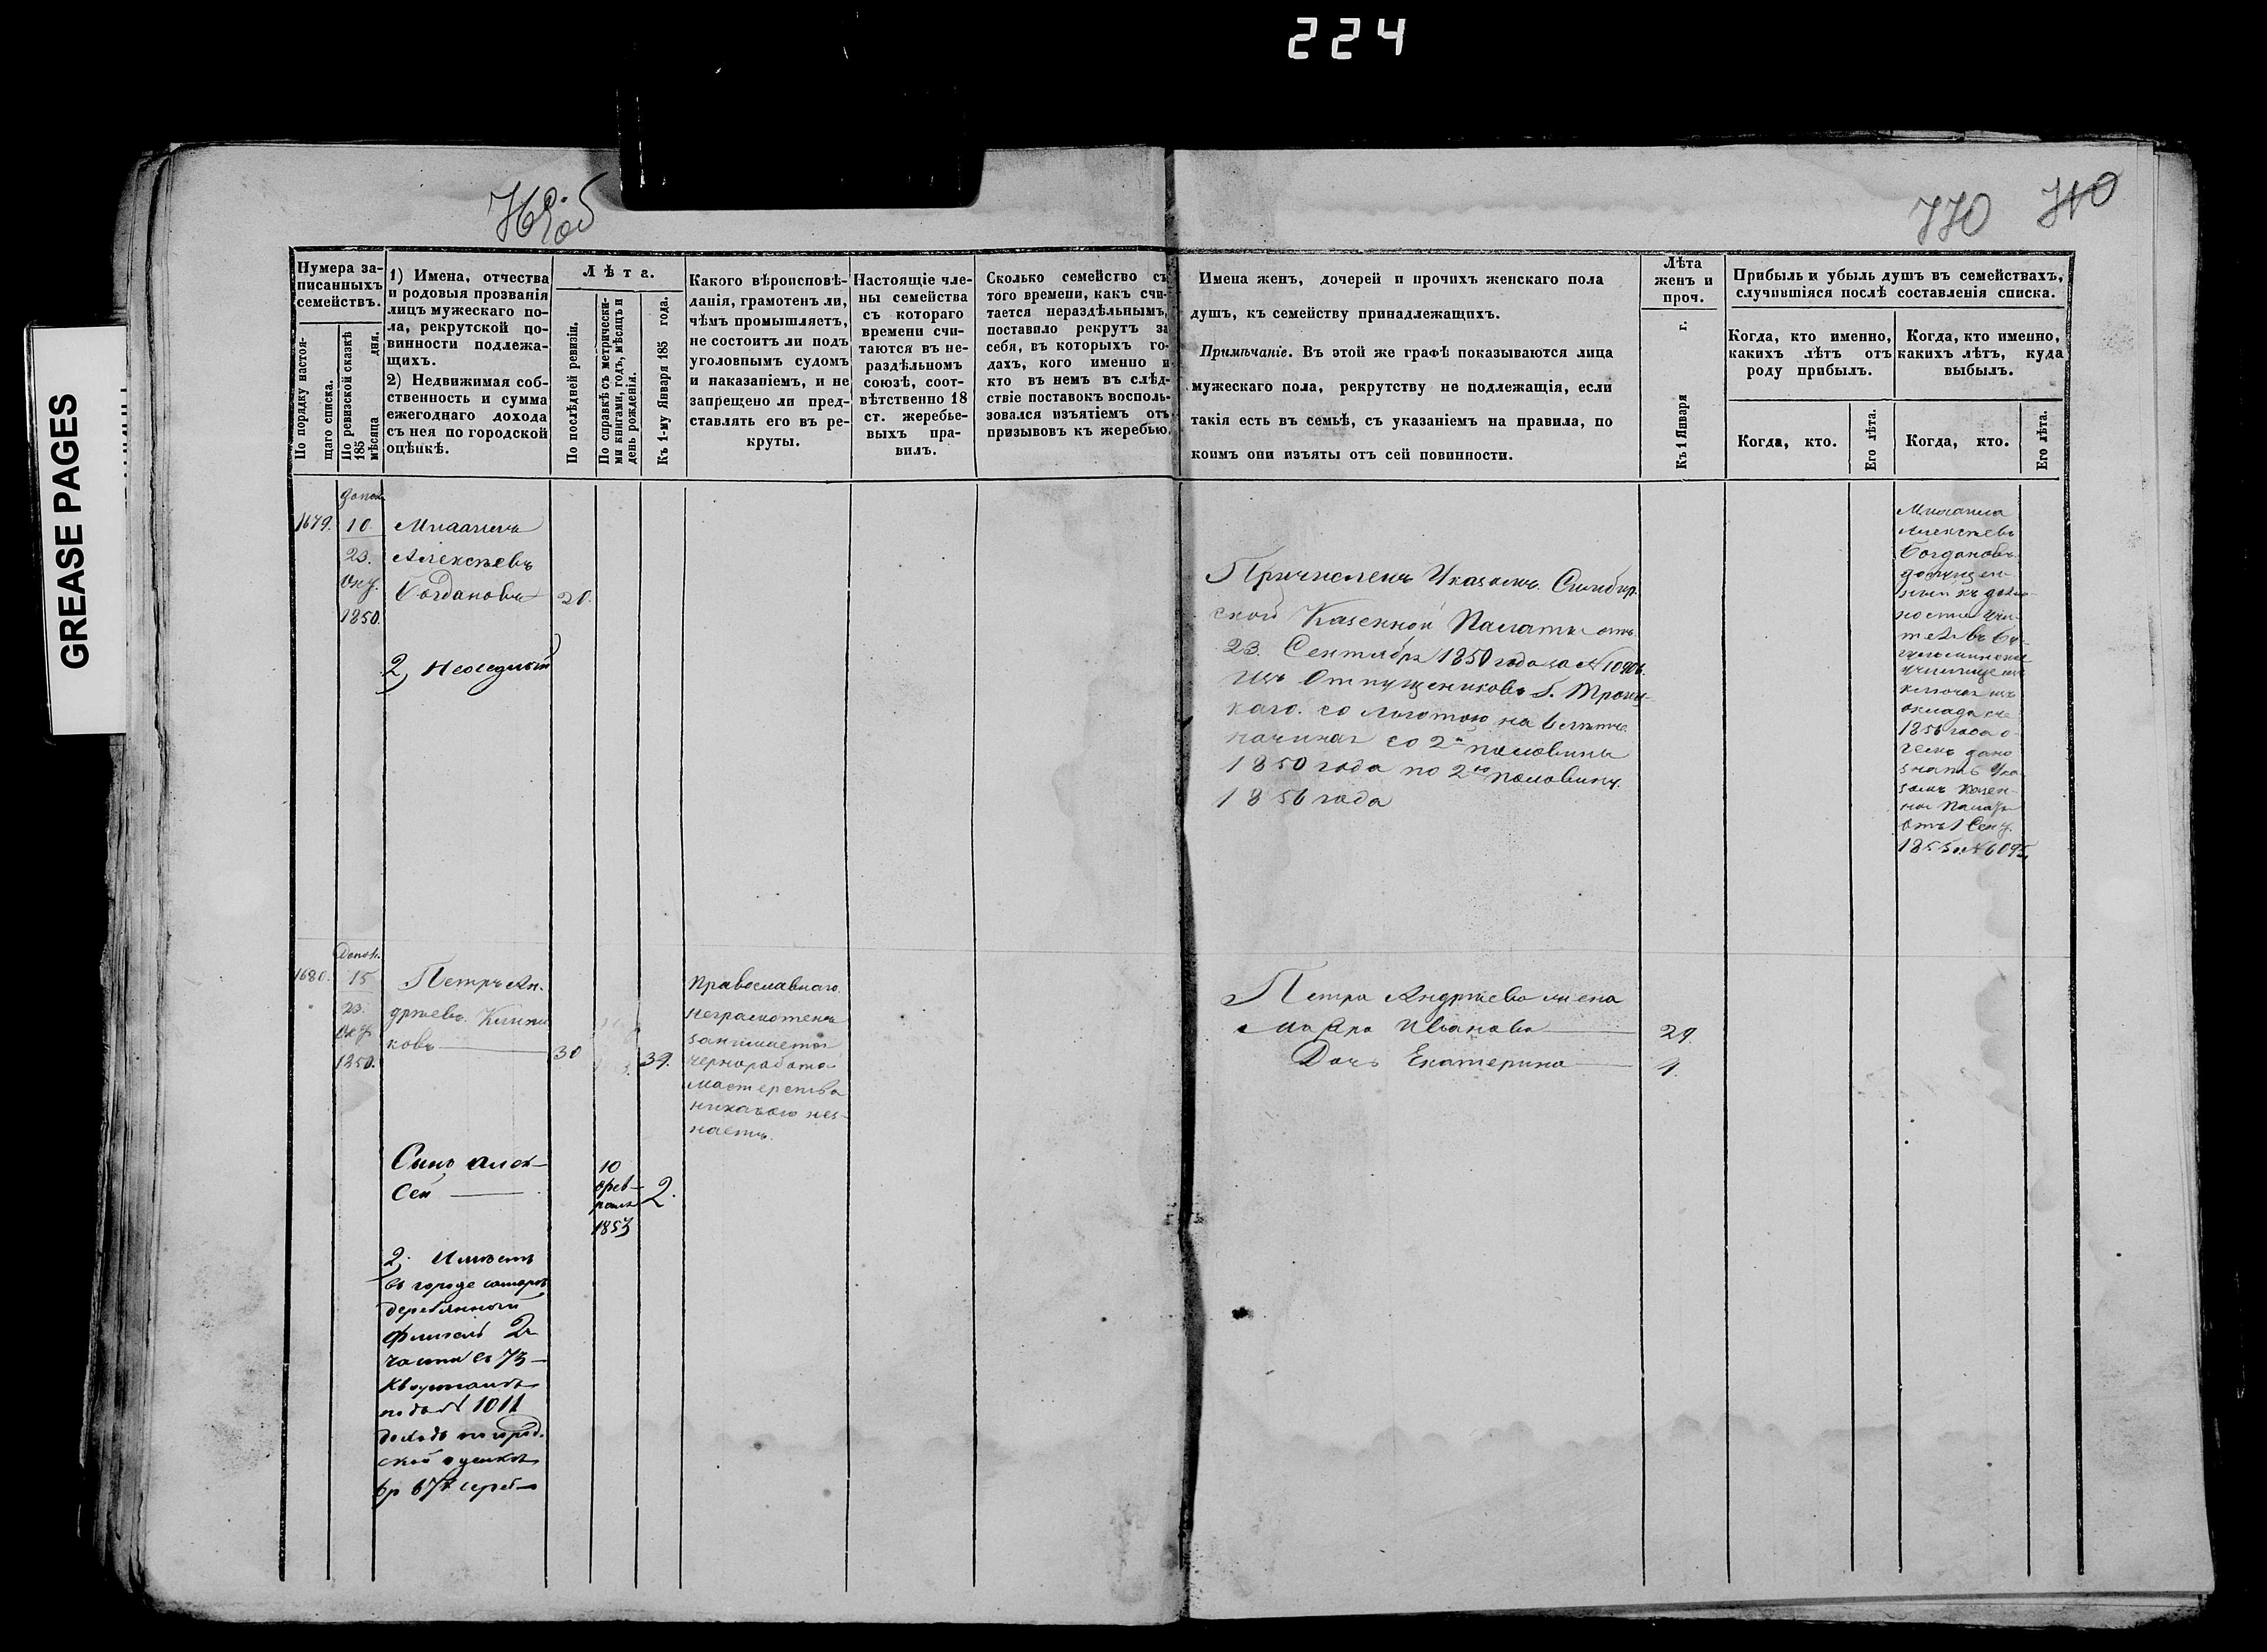 224
GREASE PAGES
770
Нумера за-
писанныхъ
семействъ.
По порядку настоя-
щаго списка.
По ревизской сказкѣ
185
мѣсяца дня.
1) Имена, отчества
и родовыя прозванія
лицъ мужескаго по-
ла, рекрутской по-
винности подлежа-
щихъ.
2) Недвижимая соб-
ственность и сумма
ежегоднаго дохода
съ нея по городской
оцѣнкѣ.
Лѣта.
По послѣдней ревизіи.
По справкѣ съ метрически-
ми книгами, годъ, мѣсяцъ и
день рожденія.
Къ 1-му Января 185 года.
Какого вѣроисповѣ-
данія, грамотенъ ли,
чѣмъ промышляетъ,
не состоитъ ли подъ
уголовнымъ судомъ
и наказаніемъ, и не
запрещено ли пред-
ставлять его въ ре-
круты.
Настоящіе чле-
ны семейства
съ котораго
времени счи-
таются въ не-
раздѣльномъ
союзѣ, соот-
вѣтственно 18
ст. жеребье-
выхъ пра-
вилъ.
Сколько семейство съ
того времени, какъ счи-
тается нераздѣльнымъ,
поставило рекрутъ за
себя, въ которыхъ го-
дахъ, кого именно и
кто въ немъ въ слѣд-
ствіе поставокъ восполь-
зовался изъятіемъ отъ
призывовъ къ жеребью.
Имена женъ, дочерей и прочихъ женскаго пола
душъ, къ семейству принадлежащихъ.
Примѣчаніе. Въ этой же графѣ показываются лица
мужескаго пола, рекрутству не подлежащія, если
такія есть въ семьѣ, съ указаніемъ на правила, по
коимъ они изъяты отъ сей повинности.
Лѣта
женъ и
проч.
Къ 1 Января г.
Прибыль и убыль душъ въ семействахъ,
случившіяся послѣ составленія списка.
Когда, кто именно,
какихъ лѣтъ отъ
роду прибылъ.
Когда, кто.
Его лѣта.
Когда, кто именно,
какихъ лѣтъ, куда
выбылъ.
Когда, кто.
Его лѣта.
1679.
10
23.
1850.
Михаилъ
Алексѣевъ
Богдановъ
20.
2,
Причисленъ Указомъ Симбир.
ской Казенной Палаты отъ
23. Сентября 1850 года за №
Изъ Отпущениковъ Г.
каго. со льготою на 6 лѣтъ
начиная со 2й половины
1850 года по 2ю половину
1856 года
Михаила
Алексѣевъ
Богдановъ
училище
оклада съ
1856 года о
чемъ дано
знать Ука
зомъ Казен-
ной Палаты
отъ 1 Сент.
1855 № 6095
1680.
Допол.
15
23.
1850.
Петръ Ан.
дрѣевъ
ковъ
30
39.
Православнаго
неграмотенъ
занимается
чернорабо
мастерства
никакого нез-
наетъ.
Петра Андрѣева жена
Мавра Иванова
29.
Дочь Екатерина
1.
Сынъ Алек-
сей
10
фев-
раля
1853
2.
2, Имѣетъ
въ городе самарѣ
деревянный
флигель 2й
части въ 73
кварталѣ
подъ № 1011
доходъ по город.
ской оценкѣ
6р 67к сереб